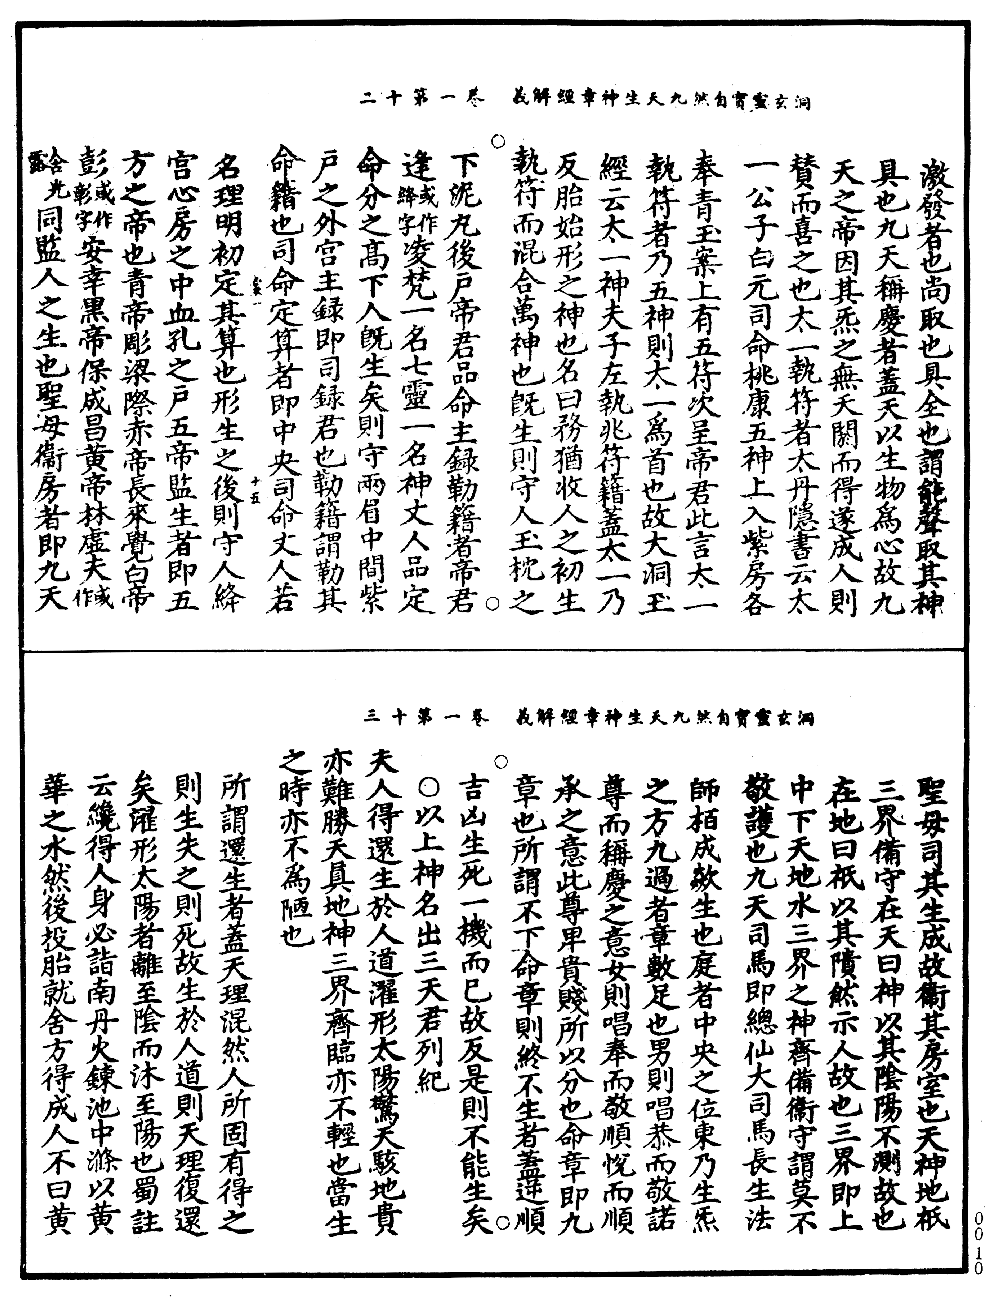 洞玄靈寶自然九天生神章經解義　卷一第十二
激發者也尚取也具全也謂能聲取其神
具也九天稱慶者蓋天以生物為心故九
天之帝因其炁之無天閼而得遂成人則
賛而喜之也太一執符者太丹隱書云太
一公子白元司命桃康五神上入紫房各
奉青玉案上有五符次呈帝君此言太一
執符者乃五神則太一為首也故大洞玉
經云太一神夫子左執兆符籍蓋太一乃
反胎始形之神也名曰務猶收人之初生
執符而混合萬神也旣生則守人玉枕之
下泥丸後戶帝君品命主録勒籍者帝君
逢或作絳字凌梵一名七靈一名神丈人品定
命分之高下人旣生矣則守兩眉中間紫
戶之外宫主録即司録君也勒籍謂勒其
命籍也司命定算者即中央司命丈人若
名理明初定其算也形生之後則守人絳
宫心房之中血孔之戶五帝監生者即五
方之帝也青帝彫梁際赤帝長來覺白帝
彭或作彰字安幸黒帝保成昌黄帝林虛夫或作
含光露同監人之生也聖母衞房者即九天
十五
洞玄靈寶自然九天生神章經解義　卷一第十三
聖母司其生成故衞其房室也天神地祇
三界備守在天曰神以其陰陽不測故也
在地曰祇以其隤然示人故也三界即上
中下天地水三界之神齊備衞守謂莫不
敬護也九天司馬即總仙大司馬長生法
師栢成欻生也庭者中央之位東乃生炁
之方九過者章數足也男則唱恭而敬諾
尊而稱慶之意女則唱奉而敬順悅而順
承之意此尊卑貴賤所以分也命章即九
章也所謂不下命章則終不生者蓋逆順
吉凶生死一機而已故反是則不能生矣
○以上神名出三天君列紀
夫人得還生於人道濯形太陽驚天駭地貴
亦難勝天眞地神三界齊臨亦不輕也當生
之時亦不為陋也
所謂還生者蓋天理混然人所固有得之
則生失之則死故生於人道則天理復還
矣濯形太陽者離至陰而沐至陽也蜀註
云纔得人身必詣南丹火鍊池中滌以黄
華之水然後投胎就舍方得成人不曰黄
0010